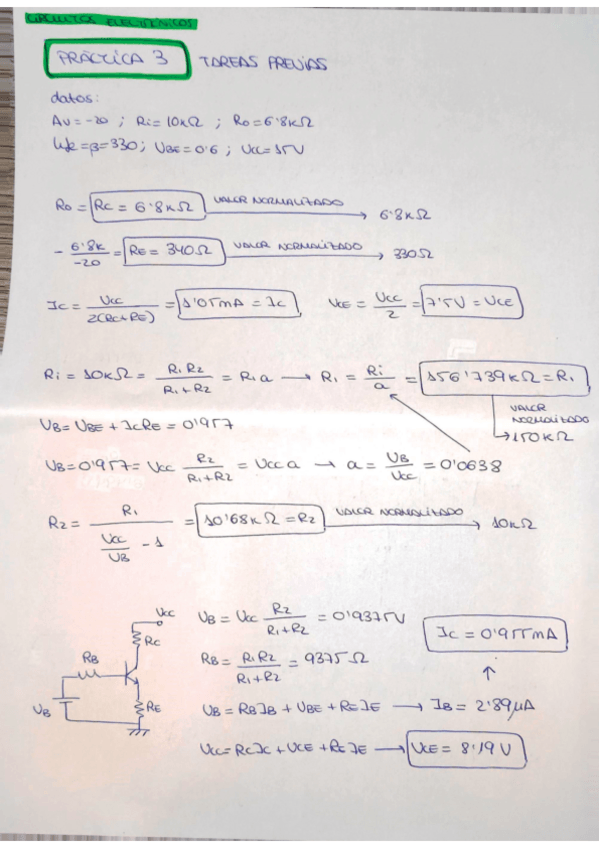 CIRCUITOS ELECTRÓNICOS
PRÁCTICA 3 TAREAS PREVIAS
datos:
Av = -20 ; Ri = 10kΩ ; Ro = 6'8kΩ
hfe = β = 330 ; VBE = 0'6 ; Vcc = 15V
Ro = Rc = 6'8kΩ VALOR NORMALIZADO → 6'8kΩ
- 6'8k / -20 = RE = 340Ω VALOR NORMALIZADO → 330Ω
Ic = Vcc / 2(Rc+RE) = 1'05mA = Ic VCE = Vcc / 2 = 7'5V = VCE
Ri = 10kΩ = R1 R2 / R1 + R2 = R1 a → R1 = Ri / a = 156'739kΩ = R1
VALOR NORMALIZADO
→ 150kΩ
VB = VBE + Ic RE = 0'957
VB = 0'957 = Vcc R2 / R1 + R2 = Vcc a → a = VB / Vcc = 0'0638
R2 = R1 / Vcc / VB - 1 = 10'68kΩ = R2 VALOR NORMALIZADO → 10kΩ
Vcc
Rc
RB
RE
VB
VB = Vcc R2 / R1 + R2 = 0'9375V
Ic = 0'955mA
RB = R1 R2 / R1 + R2 = 9375Ω
↑
VB = RB IB + VBE + RE IE → IB = 2'89μA
Vcc = Rc Ic + VCE + RE IE → VCE = 8'19V